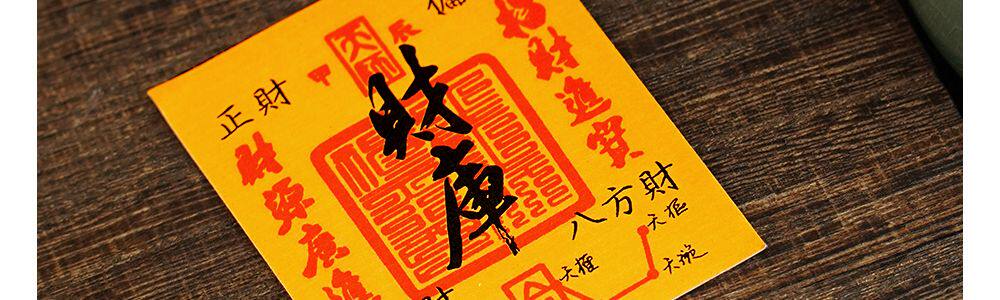 偏
甲
天師
辰
招財進寶
正財
財庫
財源廣進
八方財
天樞
天璇
天權
財